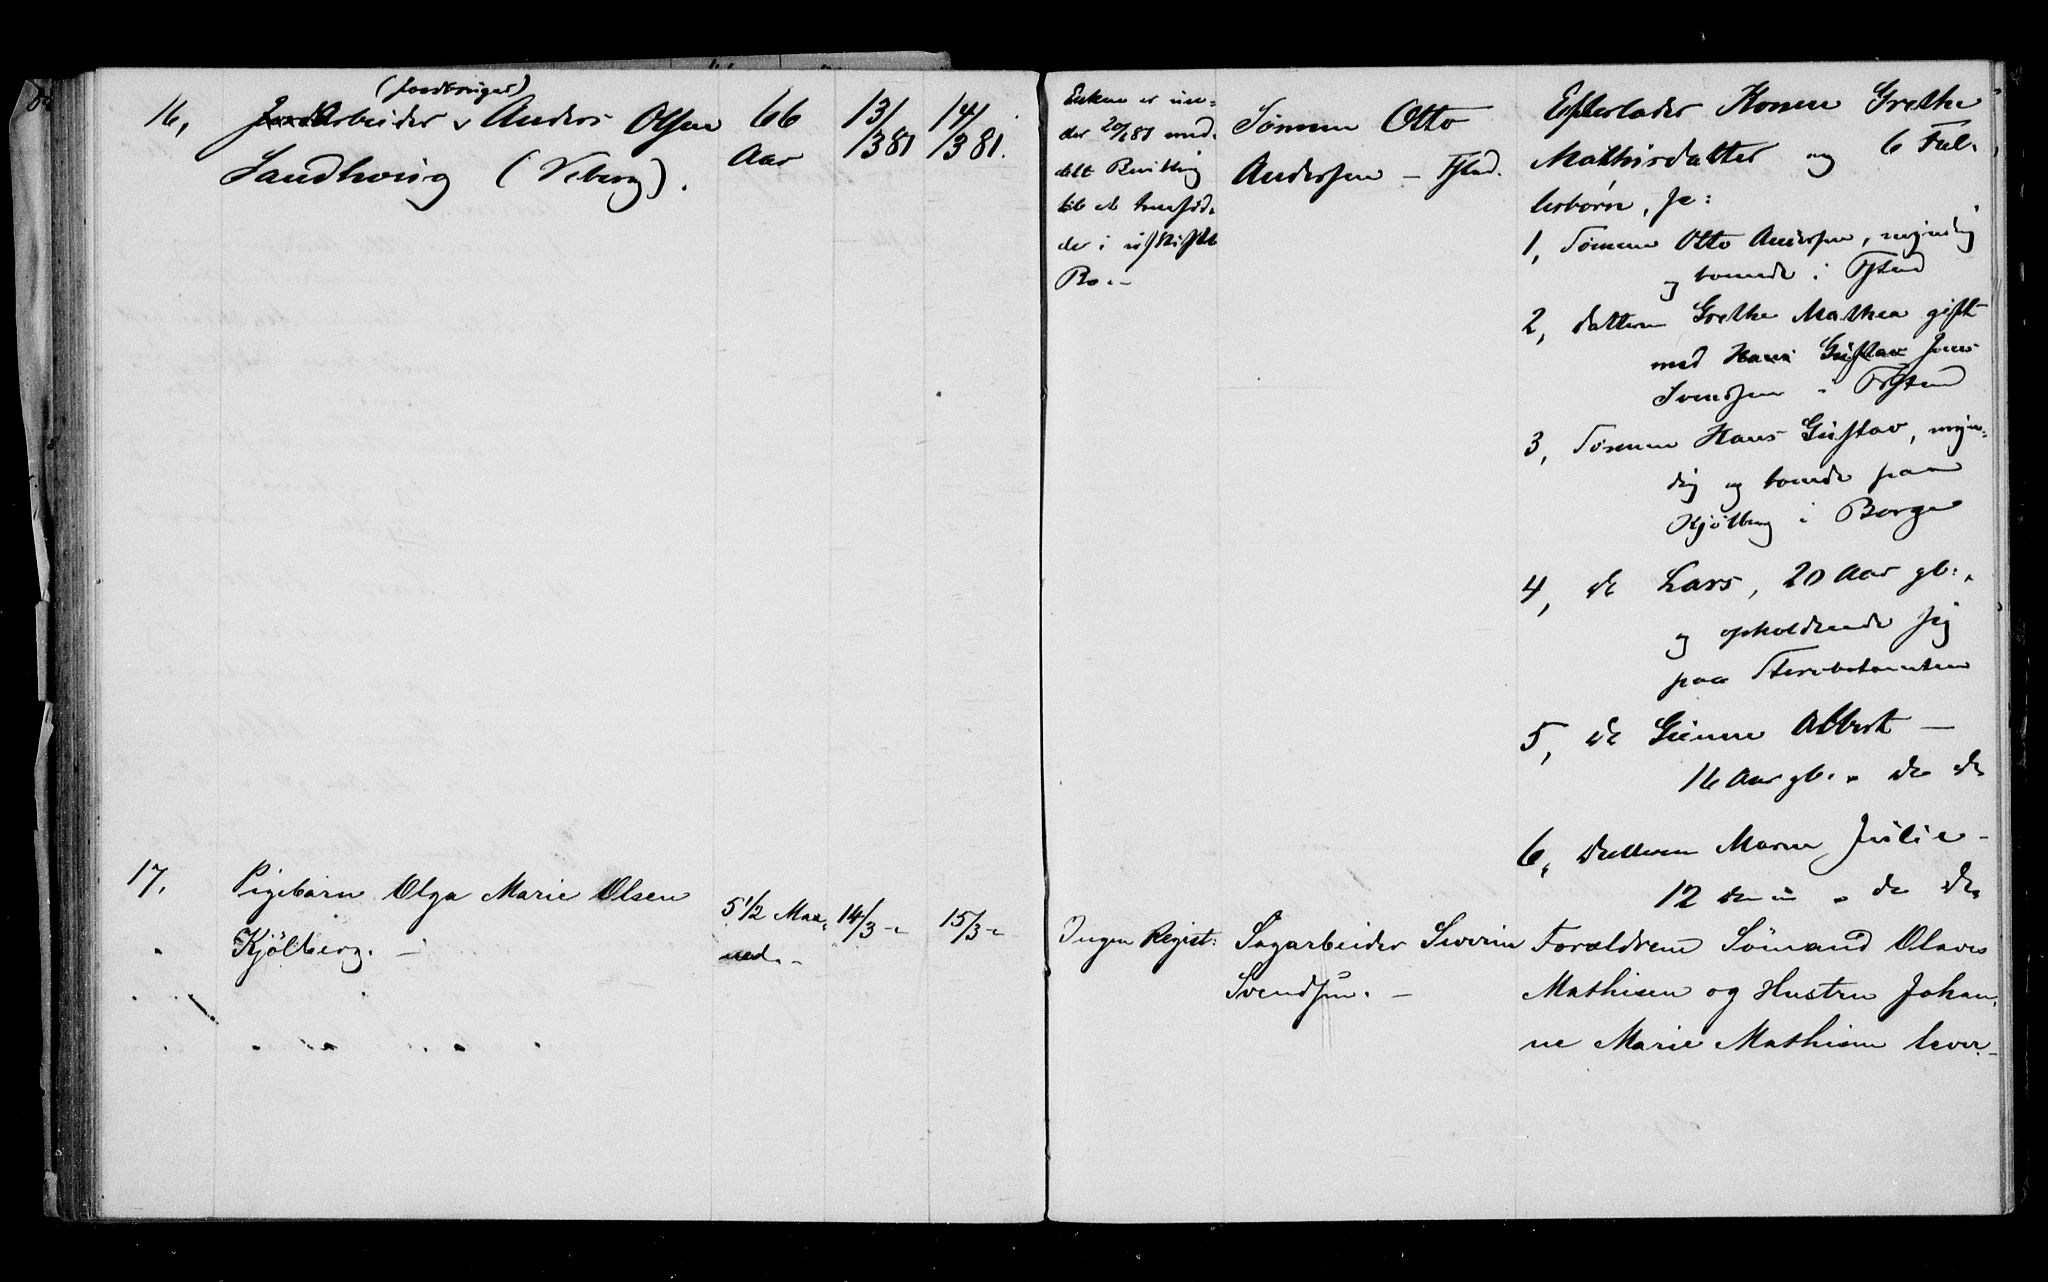 16,
(Jordbruger)
Arbeider Anders Olsen
Sandhvig (Viberg).
66
Aar
13/
/3 81
14/
/3 81.
Enken er un-
der 20/ 81 med-
delt Bevilling
til at hensid-
de i uskiftet
Bo.-
Sønnen Otto
Andersen - Fstad.
Efterlader Konen Grethe
Mathisdatter og 6 Fæl-
lesbørn, se:
1, Sønnen Otto Andersen, myndig
og boende i Fstad
2, Datteren Grethe Mathea gift
med Hans Gustav Jens
Svendsen i Fstad
3, Sønnen Hans Gustav, myn-
dig og boende paa
Kjølberg i Borge
4, do Lars, 20 Aar gl.,
og opholdende sig
paa Stervbotomten
5, do Gunne Albert -
16 Aar gl. " do do
6, Datteren Maren Julie -
12 do " " do do
17,
Pigebarn Olga Marie Olsen
Kjølberg. -
5 1/2 Maa-
ned.-
14/3 -"
15/3 -"
Ingen Regist:
Sagarbeider Severin
Svendsen. -
Forældrene Sömand Olaves
Mathisen og Hustru Johan-
ne Marie Mathisen lever.-